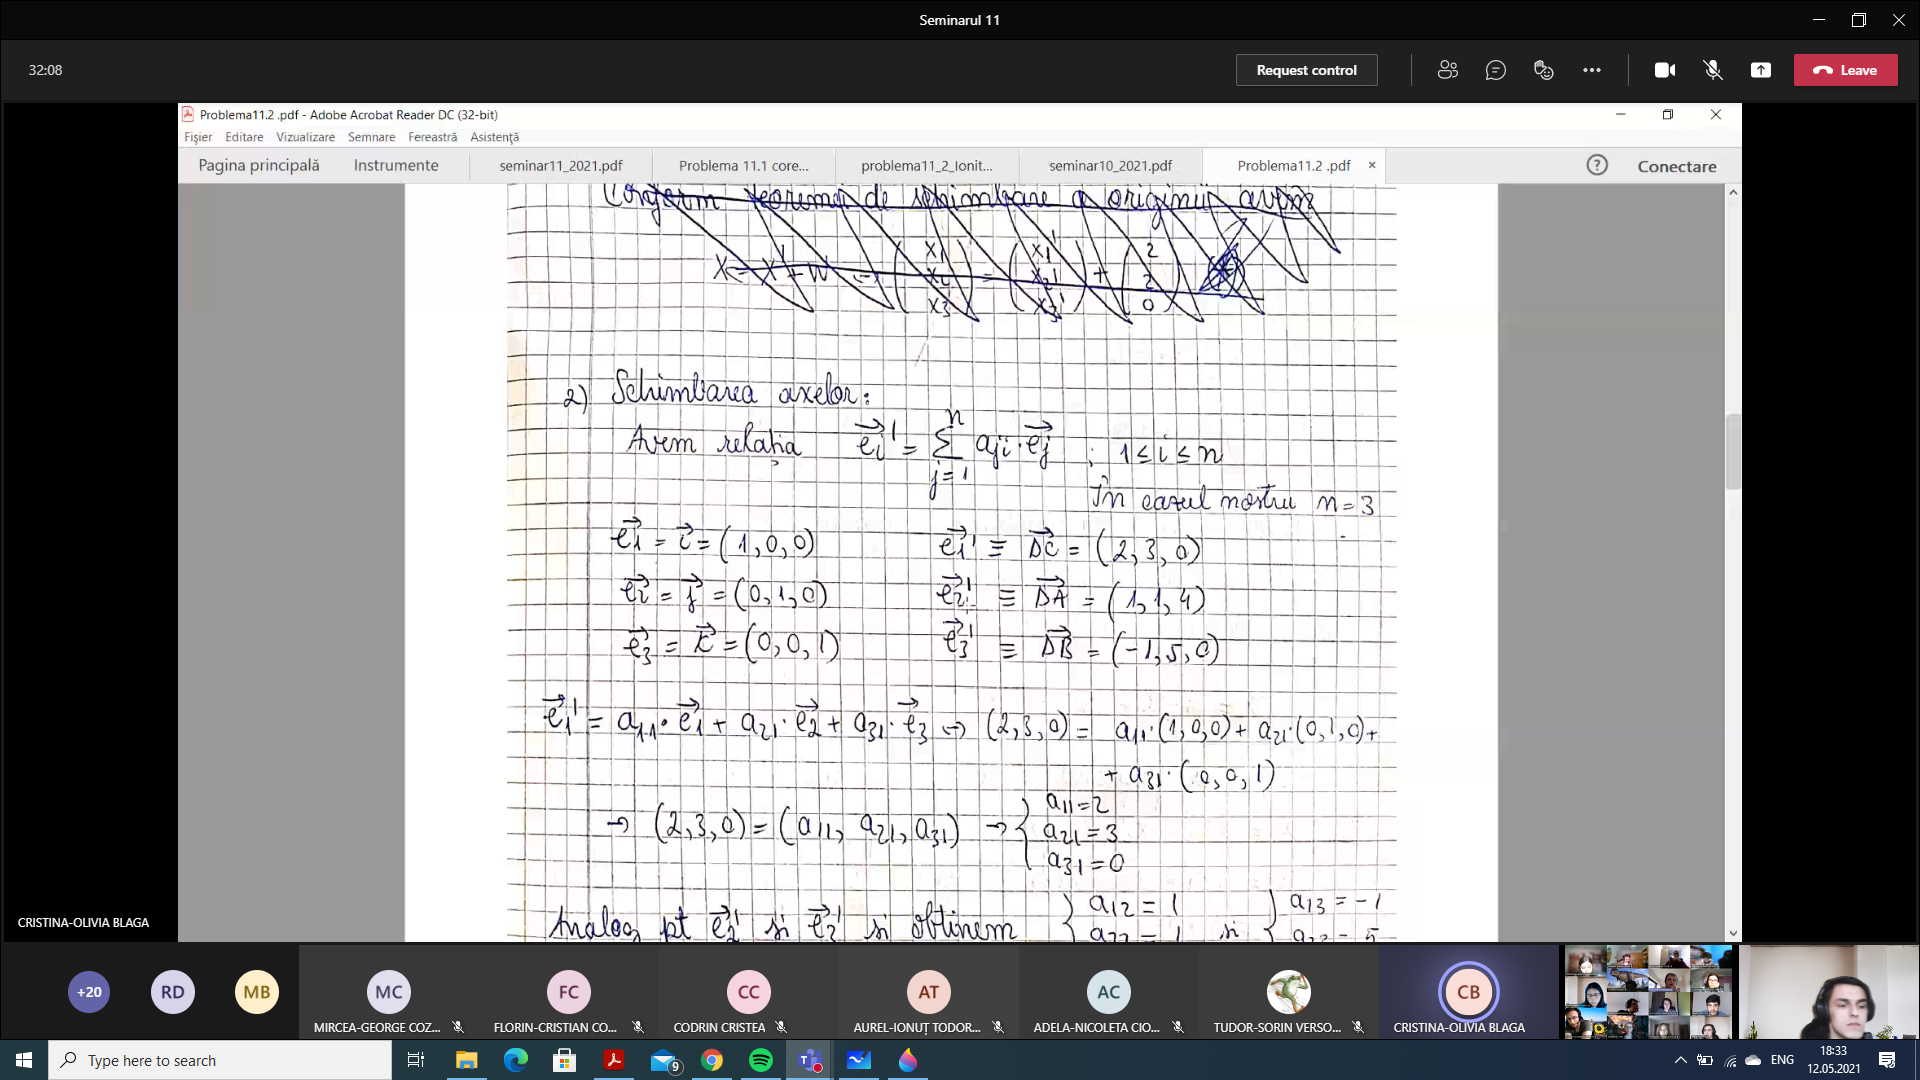 Seminarul 11
32:08
Request control
Leave
Problema11.2 .pdf - Adobe Acrobat Reader DC (32-bit)
Fișier Editare Vizualizare Semnare Fereastră Asistență
Pagina principală Instrumente seminar11_2021.pdf Problema 11.1 core... problema11_2_Ionit... seminar10_2021.pdf Problema11.2 .pdf × Conectare
Conform teoremei de schimbare a originii avem
(x1 x2 x3) = (x1' x2' x3') + (2 2 0)
2) Schimbarea axelor:
Avem relația ei' = Σ j=1 n aji · ej ; 1 ≤ i ≤ n
În cazul nostru n = 3
e1 = i = (1,0,0) e1' ≡ DC = (2,3,0)
e2 = j = (0,1,0) e2' ≡ DA = (1,1,4)
e3 = k = (0,0,1) e3' ≡ DB = (-1,5,0)
e1' = a11 · e1 + a21 · e2 + a31 · e3 → (2,3,0) = a11·(1,0,0) + a21·(0,1,0) +
+ a31·(0,0,1)
→ (2,3,0) = (a11, a21, a31) → { a11 = 2
a21 = 3
a31 = 0
Analog pt e2' și e3' și obținem { a12 = 1 și { a13 = -1
a22 = 1 a23 = 5
CRISTINA-OLIVIA BLAGA
+20 RD MB MC FC CC AT AC CB
MIRCEA-GEORGE COZ... FLORIN-CRISTIAN CO... CODRIN CRISTEA AUREL-IONUȚ TODOR... ADELA-NICOLETA CIO... TUDOR-SORIN VERSO... CRISTINA-OLIVIA BLAGA
Type here to search
9
ENG
18:33
12.05.2021